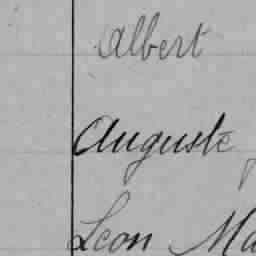 Albert
Auguste
Leon Ma